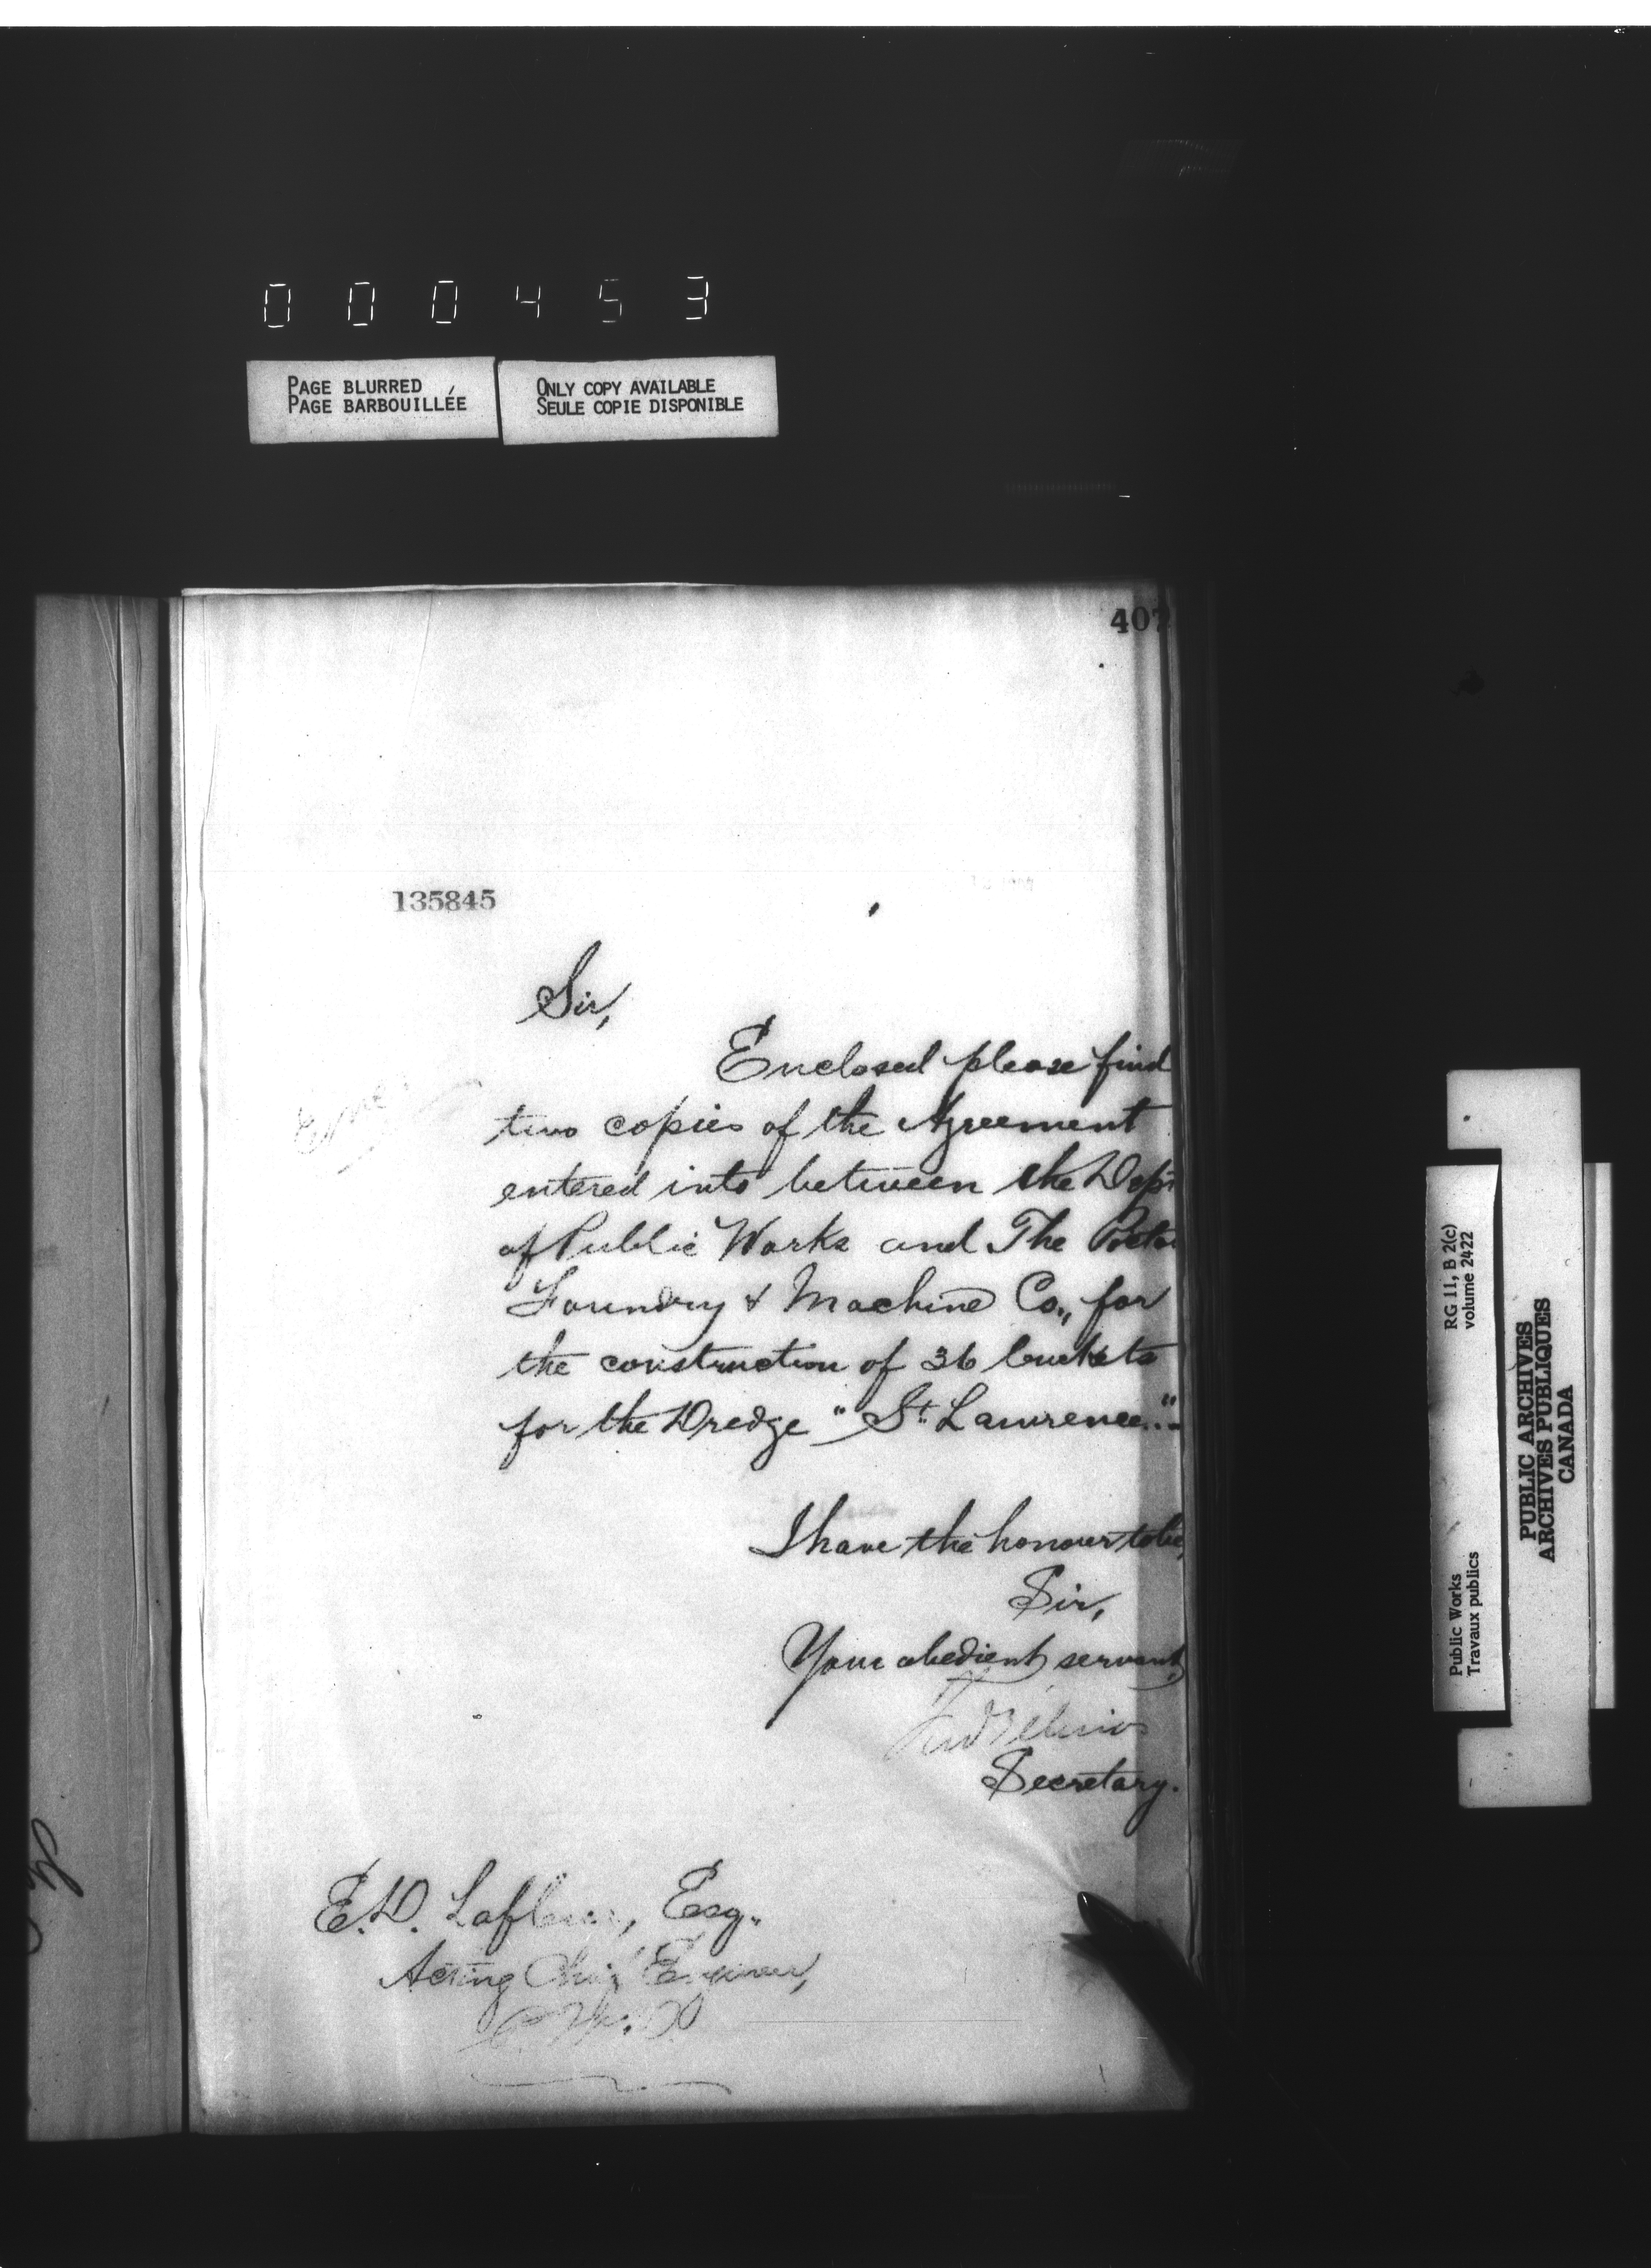 000453
PAGE BLURRED
PAGE BARBOUILLÉE
ONLY COPY AVAILABLE
SEULE COPIE DISPONIBLE
407
135845
Sir,
Enclosed please find
two copies of the Agreement
entered into between the Dept
of Public Works and The
Foundry & Machine Co., for
the construction of 36 buckets
for the Dredge "St. Lawrence."
I have the honour to be,
Sir,
Your obedient servant,
Secretary.
E.D. Lafleur, Esq.
Acting Chief Engineer,
RG 11, B 2(c)
volume 2422
Public Works
Travaux publics
PUBLIC ARCHIVES
ARCHIVES PUBLIQUES
CANADA